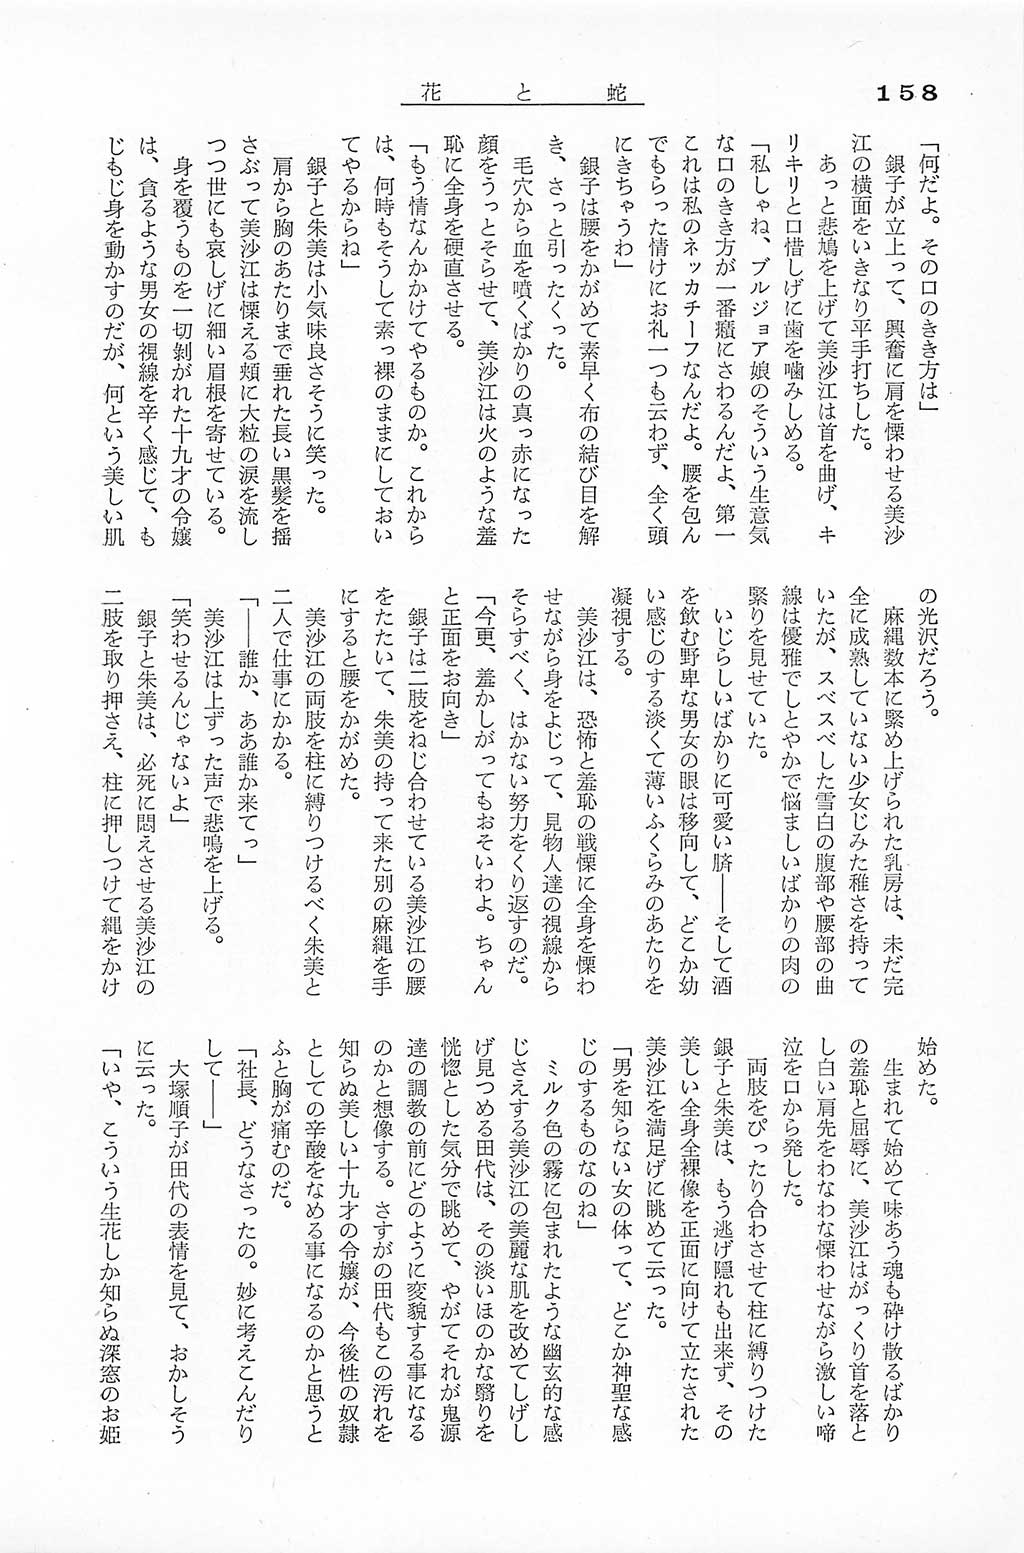 158
花と蛇
「何だよ。その口のきき方は」
銀子が立上って、興奮に肩を慄わせる美沙
江の横面をいきなり平手打ちした。
あっと悲鳩を上げて美沙江は首を曲げ、キ
リキリと口惜しげに歯を噛みしめる。
「私しゃね、ブルジョア娘のそういう生意気
な口のきき方が一番癪にさわるんだよ、第一
これは私のネッカチーフなんだよ。腰を包ん
でもらった情けにお礼一つも云わず、全く頭
にきちゃうわ」
銀子は腰をかがめて素早く布の結び目を解
き、さっと引ったくった。
毛穴から血を噴くばかりの真っ赤になった
顔をうっとそらせて、美沙江は火のような羞
恥に全身を硬直させる。
「もう情なんかかけてやるものか。これから
は、何時もそうして素っ裸のままにしておい
てやるからね」
銀子と朱美は小気味良さそうに笑った。
肩から胸のあたりまで垂れた長い黒髪を揺
さぶって美沙江は慄える頬に大粒の涙を流し
つつ世にも哀しげに細い眉根を寄せている。
身を覆うものを一切剥がれた十九才の令嬢
は、貪るような男女の視線を辛く感じて、も
じもじ身を動かすのだが、何という美しい肌
の光沢だろう。
麻縄数本に緊め上げられた乳房は、未だ完
全に成熟していない少女じみた稚さを持って
いたが、スベスベした雪白の腹部や腰部の曲
線は優雅でしとやかで悩ましいばかりの肉の
緊りを見せていた。
いじらしいばかりに可愛い臍――そして酒
を飲む野卑な男女の眼は移向して、どこか幼
い感じのする淡くて薄いふくらみのあたりを
凝視する。
美沙江は、恐怖と羞恥の戦慄に全身を慄わ
せながら身をよじって、見物人達の視線から
そらすべく、はかない努力をくり返すのだ。
「今更、羞かしがってもおそいわよ。ちゃん
と正面をお向き」
銀子は二肢をねじ合わせている美沙江の腰
をたたいて、朱美の持って来た別の麻縄を手
にすると腰をかがめた。
美沙江の両肢を柱に縛りつけるべく朱美と
二人で仕事にかかる。
「――誰か、ああ誰か来てっ」
美沙江は上ずった声で悲鳴を上げる。
「笑わせるんじゃないよ」
銀子と朱美は、必死に悶えさせる美沙江の
二肢を取り押さえ、柱に押しつけて縄をかけ
始めた。
生まれて始めて味あう魂も砕け散るばかり
の羞恥と屈辱に、美沙江はがっくり首を落と
し白い肩先をわなわな慄わせながら激しい啼
泣を口から発した。
両肢をぴったり合わさせて柱に縛りつけた
銀子と朱美は、もう逃げ隠れも出来ず、その
美しい全身全裸像を正面に向けて立たされた
美沙江を満足げに眺めて云った。
「男を知らない女の体って、どこか神聖な感
じのするものなのね」
ミルク色の霧に包まれたような幽玄的な感
じさえする美沙江の美麗な肌を改めてしげし
げ見つめる田代は、その淡いほのかな翳りを
恍惚とした気分で眺めて、やがてそれが鬼源
達の調教の前にどのように変貌する事になる
のかと想像する。さすがの田代もこの汚れを
知らぬ美しい十九才の令嬢が、今後性の奴隷
としての辛酸をなめる事になるのかと思うと
ふと胸が痛むのだ。
「社長、どうなさったの。妙に考えこんだり
して――」
大塚順子が田代の表情を見て、おかしそう
に云った。
「いや、こういう生花しか知らぬ深窓のお姫